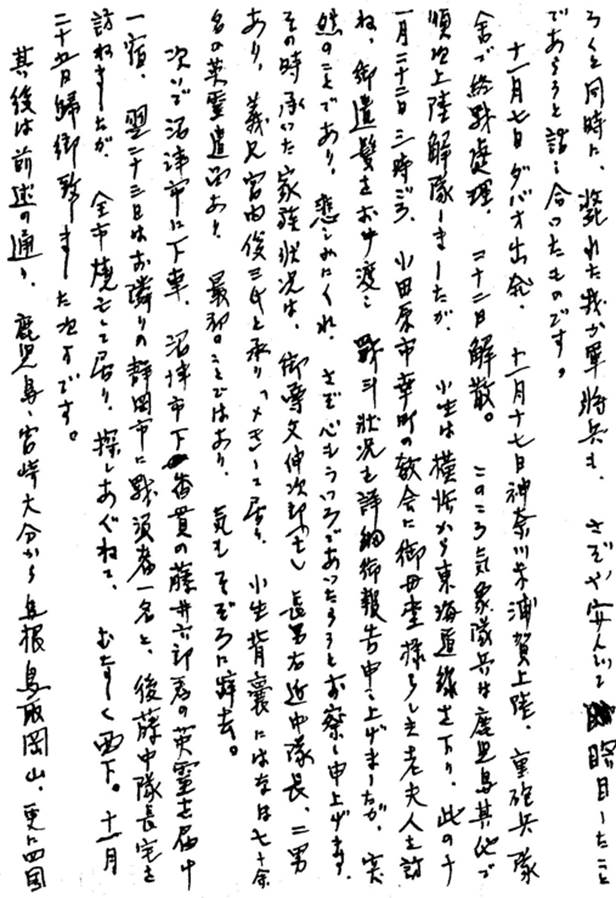 ろくと同時に、斃れた我が軍将兵も、さぞや安んじて瞑目したこと
であらうと語り合ったものです。
十一月七日ダバオ出発、十一月十七日神奈川県浦賀上陸、重砲兵隊
舎で終戦処理、二十二日解散。このころ気象隊兵は鹿児島其他で
順次上陸解隊しましたが、小生は横浜から東海道線を下り、此の十
一月二十二日三時ごろ、小田原市幸町の教会に御母堂様らしき老夫人を訪
ね、御遺髪をお渡し戦斗状況も詳細御報告申し上げましたが、実
然のことであり、悲しみにくれ、さぞ心もうつろであったらうとお察し申上げます。
その時承った家族状況は、御尊父伸次郎 長男右近中隊長、二男
あり、義兄宮内俊三氏と承り「メモ」して居り、小生背嚢にはなほ七十余
名の英霊遺品あり、最初のことではあり、気もそぞろに辞去。
次いで沼津市に下車、沼津市下香貫の藤井六郎君の英霊を届け
一宿、翌二十三日はお隣りの静岡市に戦没者一名と、後藤中隊長宅を
訪ねましたが、全市焼失して居り、探しあぐねて、むなしく西下。十一月
二十五日帰郷致しました次第です。
其後は前述の通り、鹿児島、宮崎大分から島根鳥取岡山、更に四国